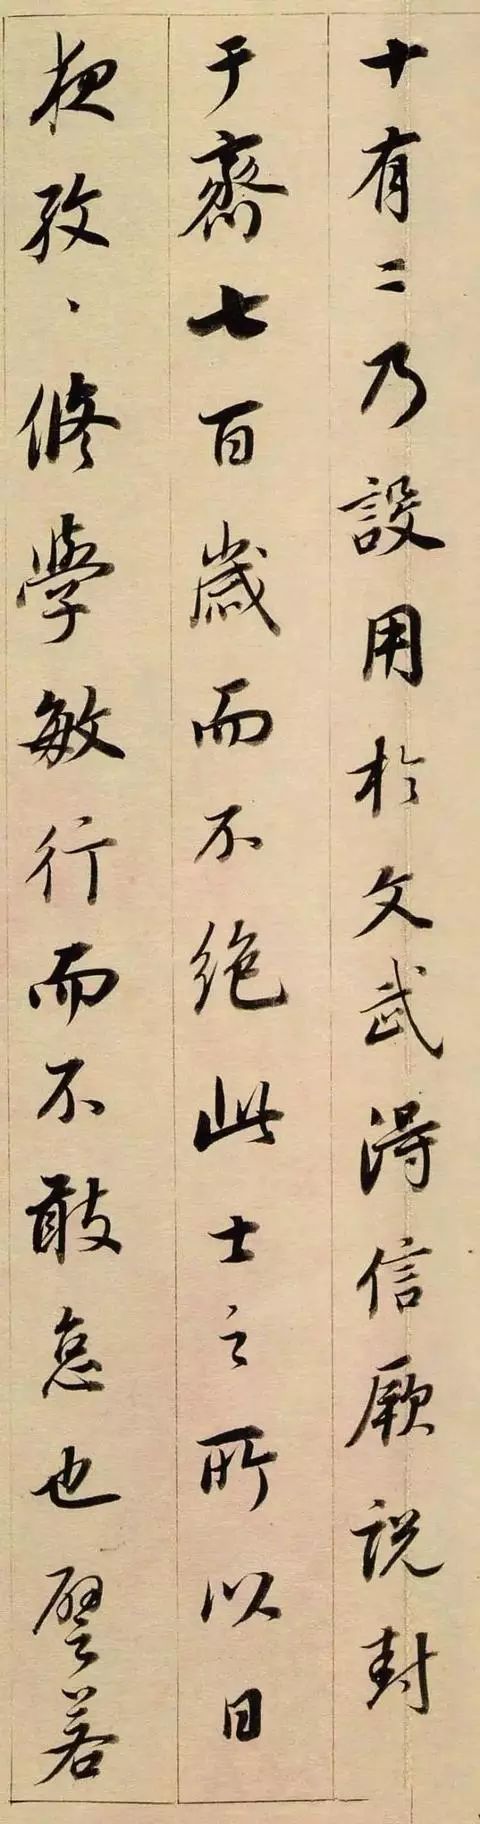 十有二乃設用於文武得信厥說封
于齊七百歲而不絕此士之所以日
夜孜、修學敏行而不敢怠也譬若